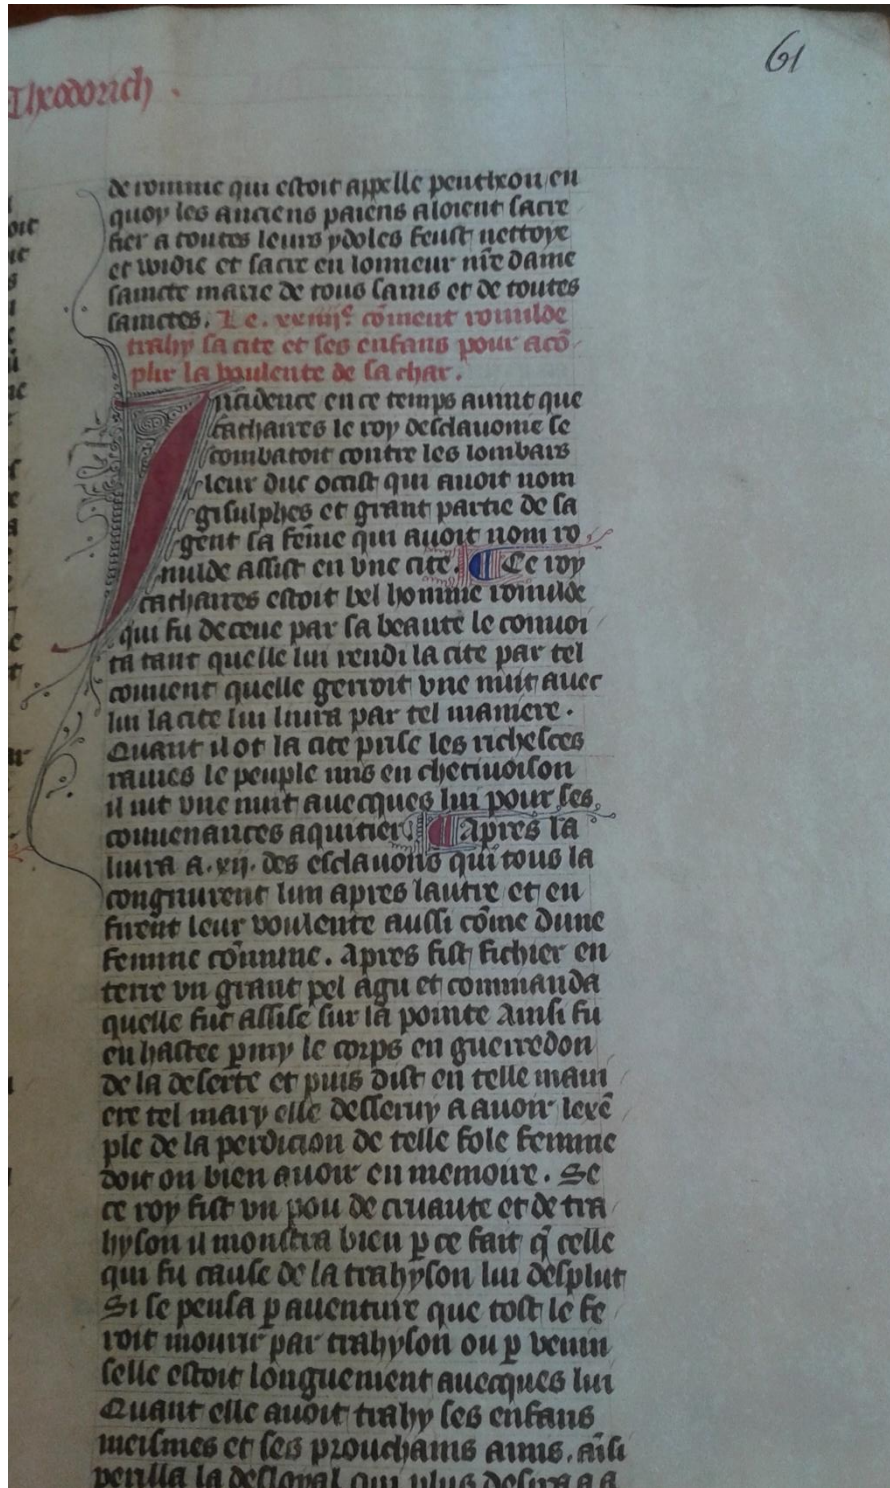 61
Theodorich.
de romme qui estoit appelle pentheon en
quoy les anciens paiens aloient sacre
fier a toutes leurs ydoles feust nettoye
et widie et sacre en lonneur nr̄e dame
saincte marie de tous sains et de toutes
sainctes. Le .xxiiij.e cōment romilde
trahy sa cite et ses enfans pour acō
plir la voulente de sa char.
Incidence en ce temps auint que
cacharres le roy desclauonie se
combatoit contre les lombars
leur duc occist qui auoit nom
gisulphes et grant partie de sa
gent sa fēme qui auoit nom ro
milde assist en vne cite. Ce roy
cacharres estoit bel homme romilde
qui fu deceue par sa beaute le conuoi
ta tant quelle lui rendi la cite par tel
conuent quelle gerroit vne nuit auec
lui la cite lui liura par tel maniere.
Quant il ot la cite prise les richesces
rauies le peuple mis en chetiuoison
il iut vne nuit auecques lui pour ses
conuenances aquitier Apres la
liura a .xij. des esclauons qui tous la
congnurent lun apres lautre et en
firent leur voulente aussi cōme dune
femme cōmune. Apres fist fichier en
terre vn grant pel agu et commanda
quelle fut assise sur la pointe Ainsi fu
en hastee ꝑmy le corps en guerredon
de la deserte et puis dist en telle mani
ere tel mary elle desseruy a auoir lexē
ple de la perdicion de telle fole femme
doit on bien auoir en memoire. Se
ce roy fist vn pou de cruaute et de tra
hyson il monstra bien ꝑ ce fait q̄ celle
qui fu cause de la trahyson lui desplut
Si se pensa ꝑ auenture que tost le fe
roit mourir par trahyson ou ꝑ venin
selle estoit longuement auecques lui
Quant elle auoit trahy ses enfans
meismes et ses prouchains amis. aīsi
perilla la desloyal qui plus desira a